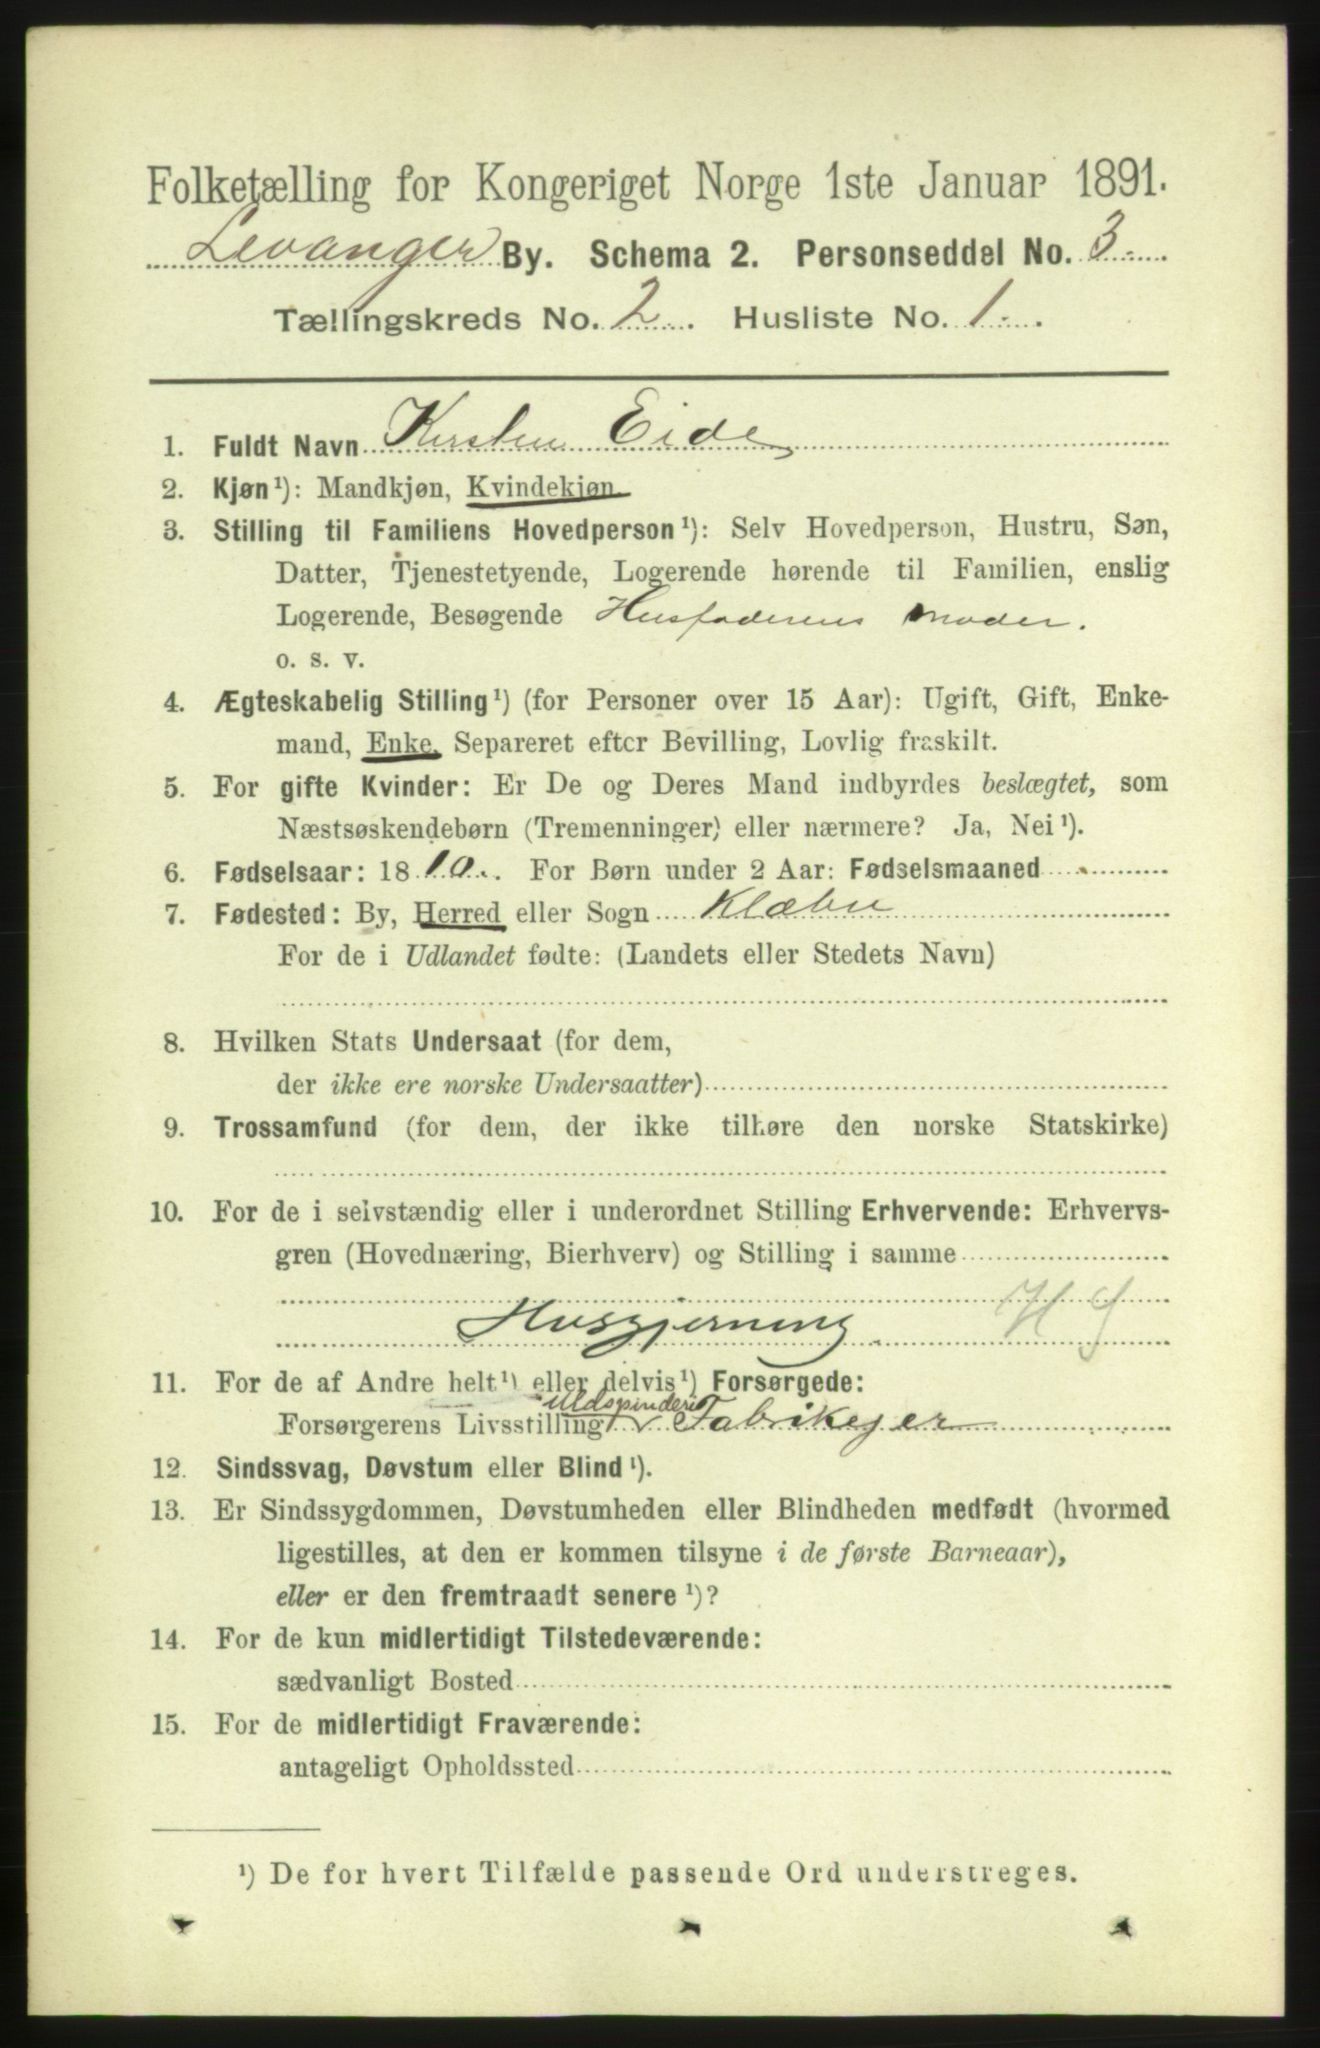 Folketælling for Kongeriget Norge 1ste Januar 1891.
Levanger By. Schema 2. Personseddel No. 3.
Tællingskreds No. 2. Husliste No. 1.
1. Fuldt Navn Kirsten Eide
2. Kjøn¹): Mandkjøn, Kvindekjøn
3. Stilling til Familiens Hovedperson¹): Selv Hovedperson, Hustru, Søn,
Datter, Tjenestetyende, Logerende hørende til Familien, enslig
Logerende, Besøgende Husfaderens Moder.
o. s. v.
4. Ægteskabelig Stilling¹) (for Personer over 15 Aar): Ugift, Gift, Enke-
mand, Enke, Separeret efter Bevilling, Lovlig fraskilt.
5. For gifte Kvinder: Er De og Deres Mand indbyrdes beslægtet, som
Næstsøskendebørn (Tremenninger) eller nærmere? Ja, Nei¹).
6. Fødselsaar: 1810. For Børn under 2 Aar: Fødselsmaaned
7. Fødested: By, Herred eller Sogn Klæbu
For de i Udlandet fødte: (Landets eller Stedets Navn)
8. Hvilken Stats Undersaat (for dem,
der ikke ere norske Undersaatter)
9. Trossamfund (for dem, der ikke tilhøre den norske Statskirke)
10. For de i selvstændig eller i underordnet Stilling Erhvervende: Erhvervs-
gren (Hovednæring, Bierhverv) og Stilling i samme
Husgjerning H G
11. For de af Andre helt¹) eller delvis¹) Forsørgede:
Uldspinderi
Forsørgerens Livsstilling Fabrikejer
12. Sindssvag, Døvstum eller Blind¹).
13. Er Sindssygdommen, Døvstumheden eller Blindheden medfødt (hvormed
ligestilles, at den er kommen tilsyne i de første Barneaar),
eller er den fremtraadt senere¹)?
14. For de kun midlertidigt Tilstedeværende:
sædvanligt Bosted
15. For de midlertidigt Fraværende:
antageligt Opholdssted
¹) De for hvert Tilfælde passende Ord understreges.